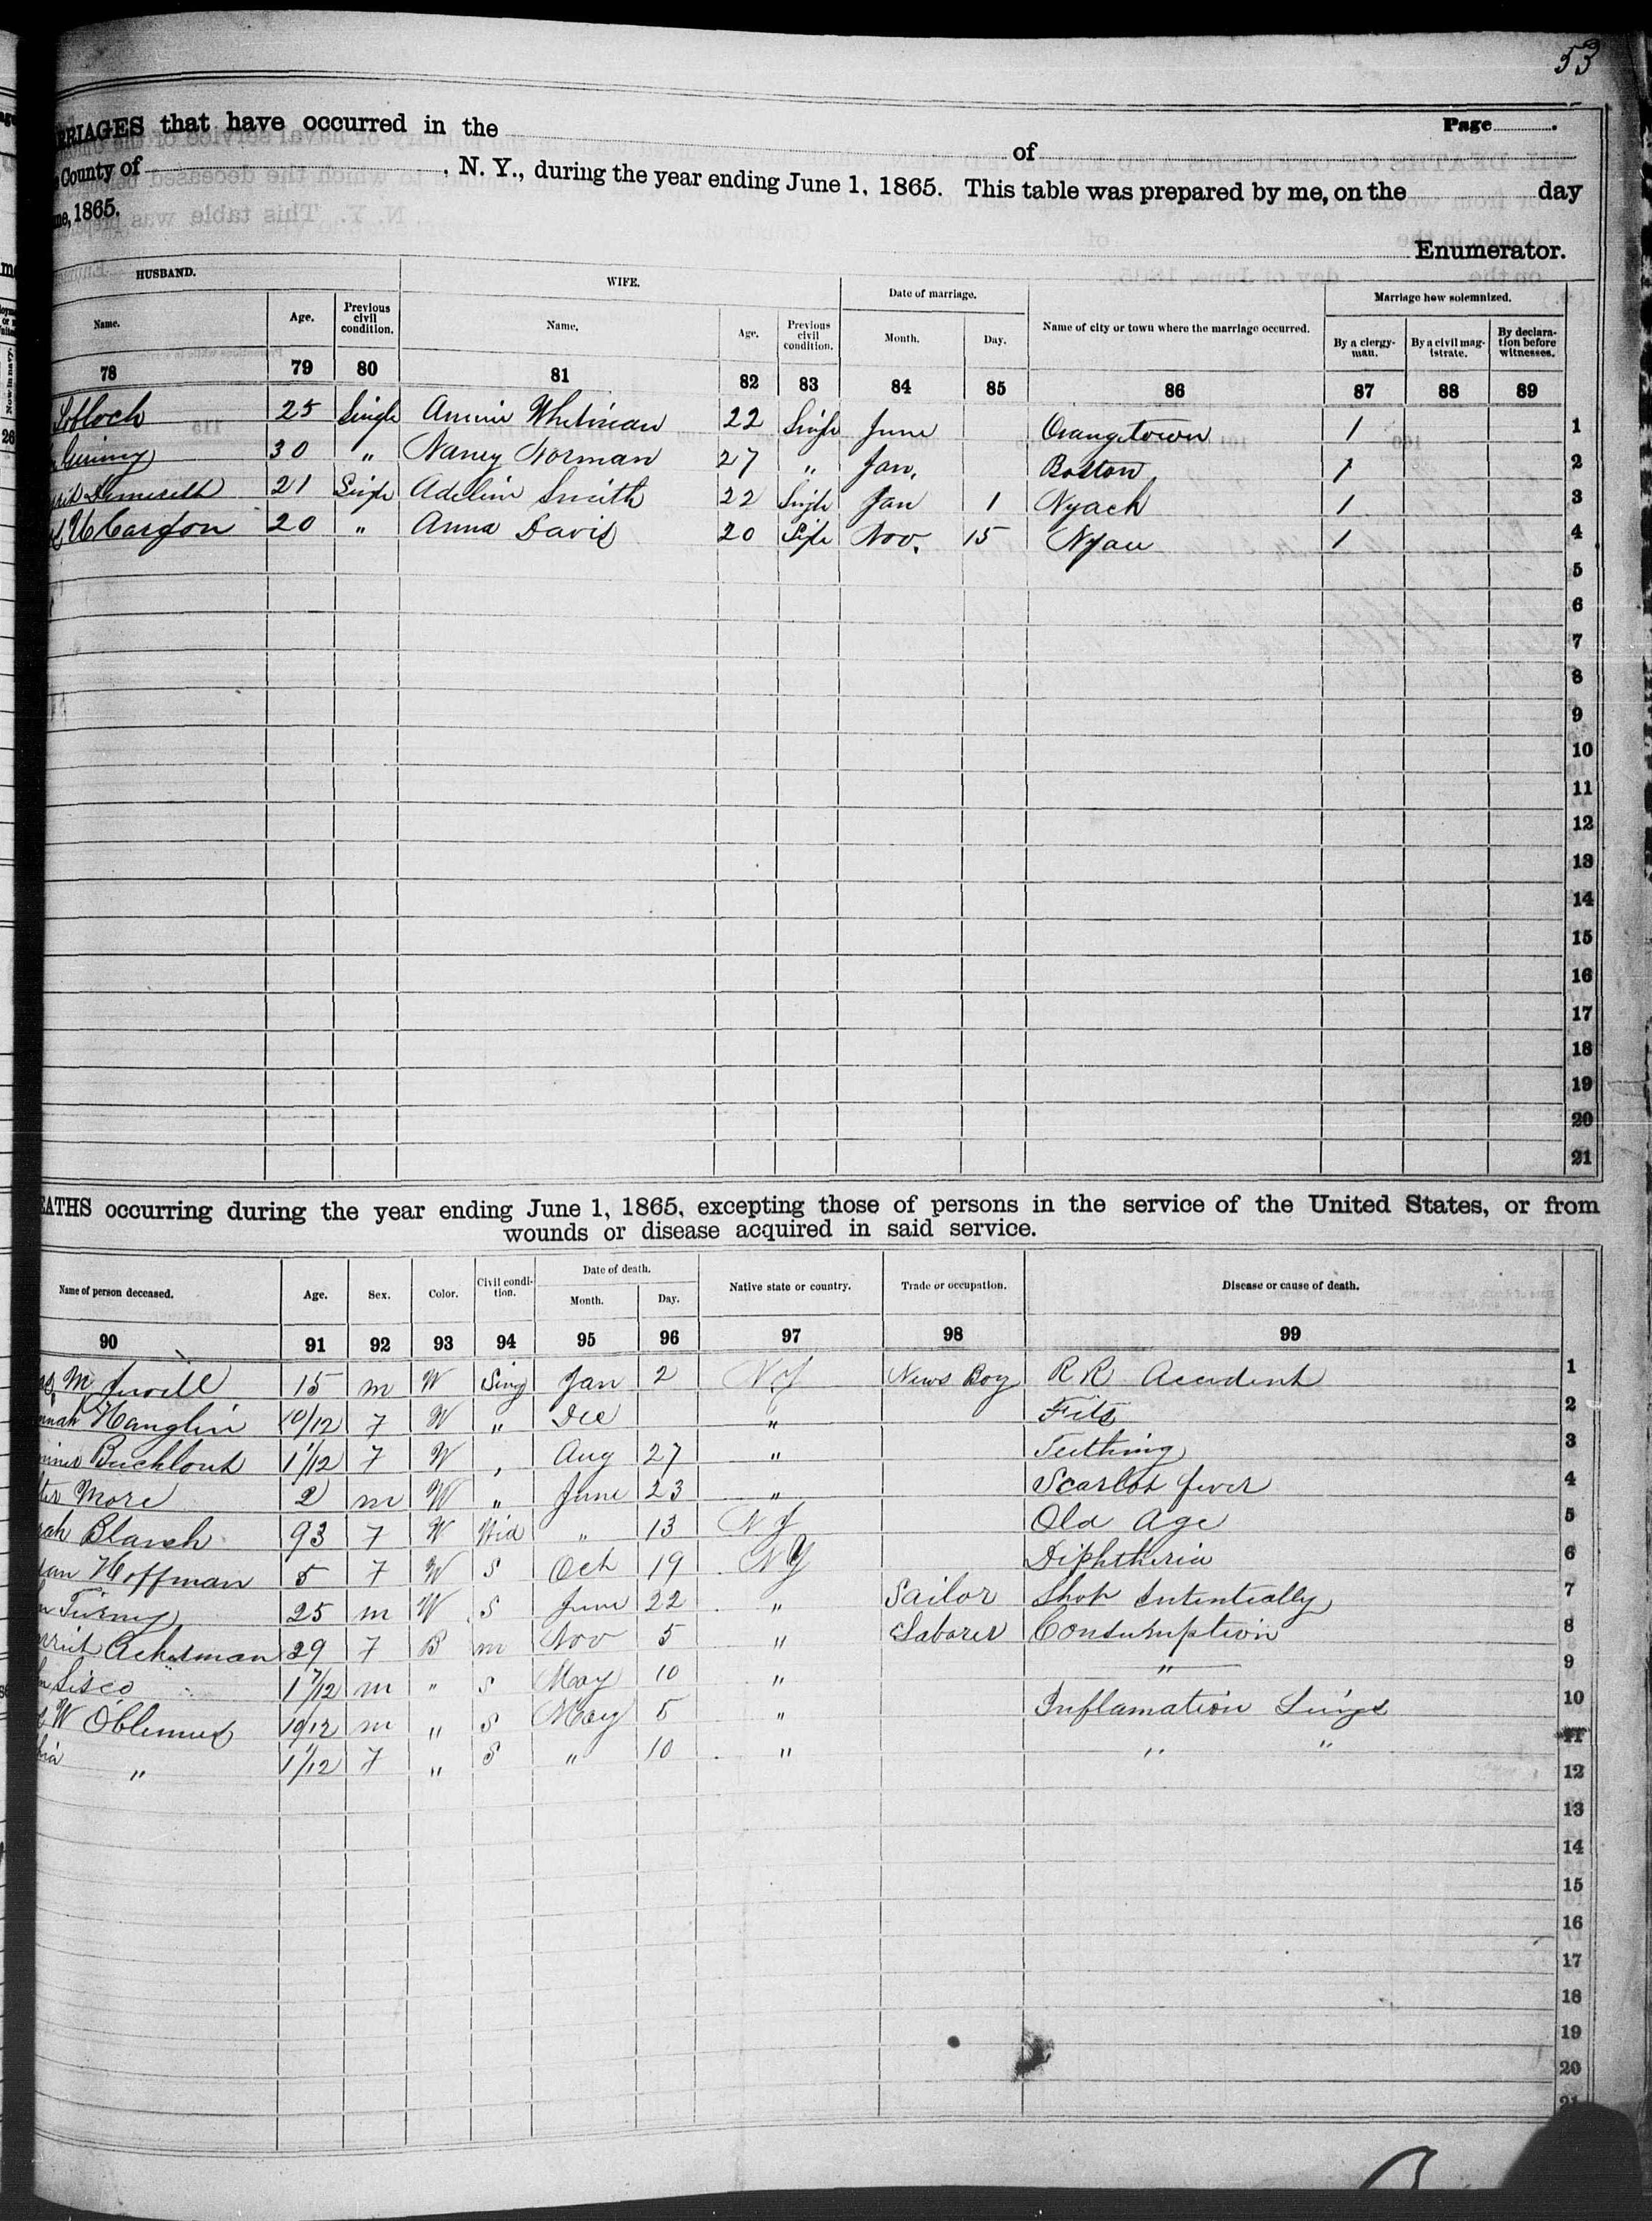 53
RRIAGES that have occurred in the of Page
County of , N. Y., during the year ending June 1, 1865. This table was prepared by me, on the day
1865.
Enumerator.
HUSBAND. WIFE. Date of marriage. Name of city or town where the marriage occurred. Marriage how solemnized.
Name. Age. Previous civil condition. Name. Age. Previous civil condition. Month. Day. By a clergy-man. By a civil mag-istrate. By declara-tion before witnesses.
78 79 80 81 82 83 84 85 86 87 88 89
25 Single Whitman 22 Single June Orangetown 1 1
30 " Nancy Norman 27 " Jan. Boston 1 2
21 Single Adelin Smith 22 Single Jan 1 Nyack 1 3
20 " Anna Davis 20 Nov. 15 1 4
5
6
7
8
9
10
11
12
13
14
15
16
17
18
19
20
21
EATHS occurring during the year ending June 1, 1865, excepting those of persons in the service of the United States, or from
wounds or disease acquired in said service.
Name of person deceased. Age. Sex. Color. Civil condi-tion. Date of death. Native state or country. Trade or occupation. Disease or cause of death.
Month. Day.
90 91 92 93 94 95 96 97 98 99
M 15 m W Sing Jan 2 News Boy R R Accident 1
Hanglin 10/12 F W " Dec " Fits 2
1 1/12 F W Aug 27 " Teething 3
More 2 m W " June 23 " Scarlet fever 4
Blauch 93 F W Wid " 13 N J Old Age 5
Hoffman 5 F W S Oct 19 N Y Diphtheria 6
25 m W S June 22 " Sailor Shot Intentially 7
Ackerman 29 F B m Nov 5 " Laborer Consumption 8
Sisco 1 7/12 m " S May 10 " " 9
W Oblenus 10/12 m " S May 5 " Inflamation Lungs 10
" 1 1/12 F " S " 10 " " " 11
12
13
14
15
16
17
18
19
20
21